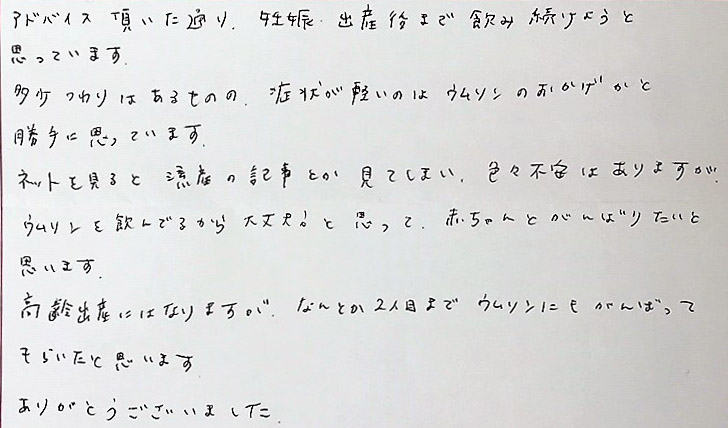 アドバイス頂いた通り、妊娠・出産後まで飲み続けようと
思っています。
多少つわりはあるものの、症状が軽いのはウムリンのおかげかと
勝手に思っています。
ネットを見ると流産の記事とか見てしまい、色々不安はありますが、
ウムリンを飲んでるから大丈夫と思って、赤ちゃんとがんばりたいと
思います。
高齢出産にはなりますが、なんとか2人目までウムリンにもがんばって
もらいたいと思います。
ありがとうございました。